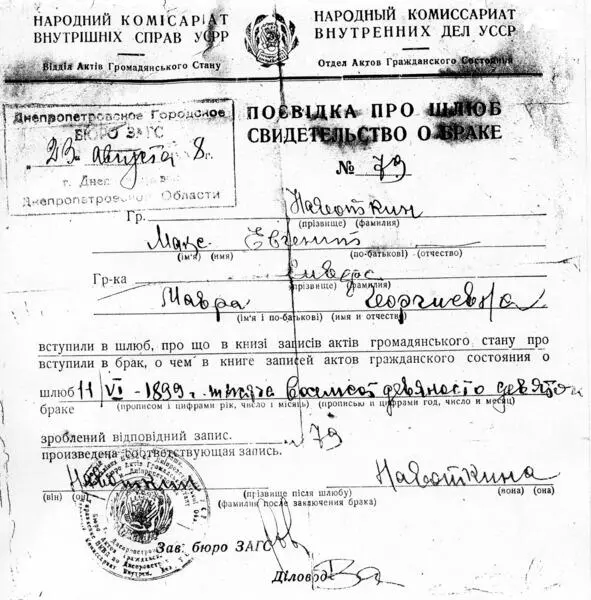 НАРОДНИЙ КОМІСАРІАТ
ВНУТРІШНІХ СПРАВ УСРР
Відділ Актів Громадянського Стану
НАРОДНЫЙ КОМИССАРИАТ
ВНУТРЕННИХ ДЕЛ УССР
Отдел Актов Гражданского Состояния
Днепропетровское Городское
БЮРО ЗАГС
23 августа 8 г.
г. Днеп
Днепропетровской Области
ПОСВІДКА ПРО ШЛЮБ
СВИДЕТЕЛЬСТВО О БРАКЕ
№ 79
Гр.
(прізвище) (фамилия)
Макс Евгений
(ім'я) (имя) (по-батькові) (отчество)
Гр-ка
(прізвище) (фамилия)
Мавра Георгиевна
(ім'я і по-батькові) (имя и отчество)
вступили в шлюб, про що в книзі записів актів громадянського стану про
вступили в брак, о чем в книге записей актов гражданского состояния о
шлюб 11/VI - 1899 г. тысяча восемсот девяносто девятого
браке (прописом і цифрами рік, число і місяць) (прописью и цифрами год, число и месяц)
зроблений відповідний запис. 79
произведена соответствующая запись.
(він) (он) (прізвище після шлюбу) (вона) (она)
(фамилия после заключения брака)
Зав. бюро ЗАГС
Діловод